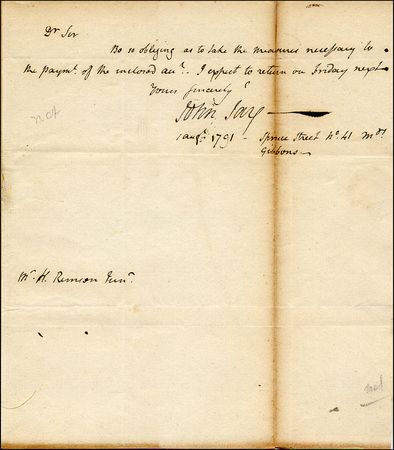 Dr Sir
Be so obliging as to take the measures necessary to
the paymt. of the inclosed acct. I expect to return on Friday next
Yours sincerely
John Jay
not
1 augt. 1791 - Spruce Street No. 41 Mrs
Gibbons
Mr. H. Remsen Junr.